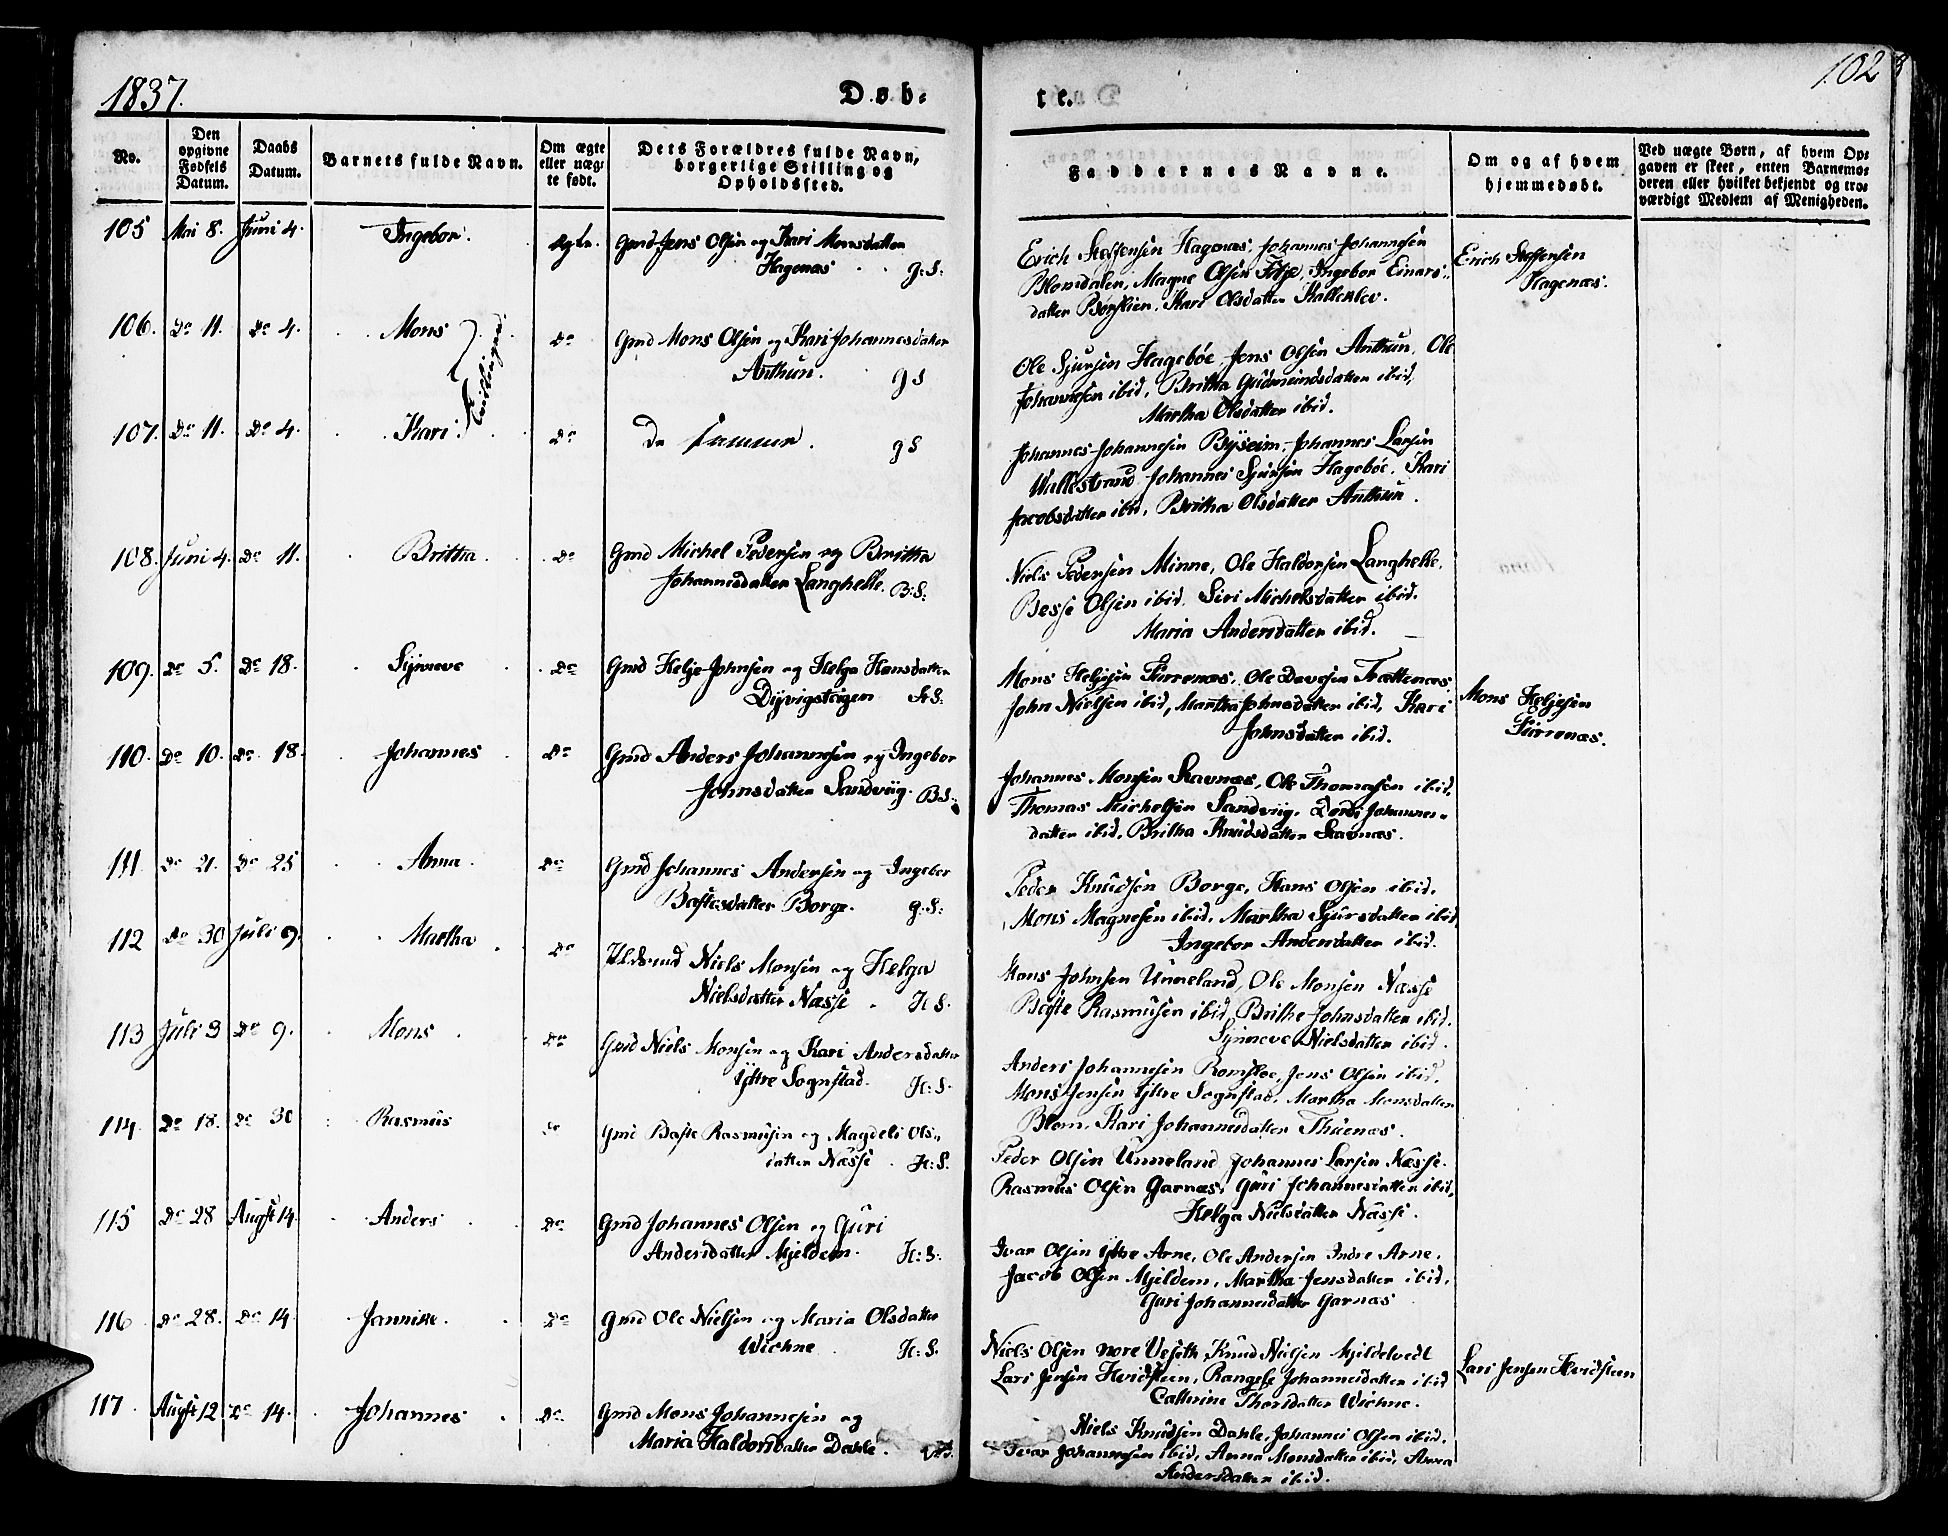 1837.
102
Døb-
te.
No.
Den opgivne Fødsels Datum.
Daabs Datum.
Barnets fulde Navn.
Om ægte eller uægte født.
Dets Forældres fulde Navn, borgerlige Stilling og Opholdssted.
Faddernes Navne.
Om og af hvem hjemmedøbt.
Ved uægte Børn, af hvem Op-
gaven er skeet, enten Barnemo-
deren eller hvilket bekjendt og tro-
værdigt Medlem af Menigheden.
105 Mai 8. Juni 4. Ingebor. ægte. Gmd Jens Olsen og Kari Monsdatter
Hagenæs G:S:
Erich Steffensen Hagenæs, Johannes Johannesen
Blomdalen, Magne Olsen Titje, Ingebor Einars-
datter Børslien, Kari Olsdatter Kallenlev.
Erich Steffensen
Hagenæs.
106. Do 11. Do 4. Mons Tvillinger Do Gmd Mons Olsen og Kari Johannesdatter
Anthun. G S
Ole Sjursen Hagebøe, Jens Olsen Anthun, Ole
Johannesen ibid, Britha Gudmundsdatter ibid,
Martha Olsdatter ibid.
107. Do 11. Do 4. Kari Do De Samme. G S
Johannes Johannesen Byseim, Johannes Larsen
Wallestrand, Johannes Sjursen Hagebøe, Kari
Jacobsdatter ibid, Britha Olsdatter Anthun.
108. Juni 4. Do 11. Britha. Do Gmd Michel Pedersen og Britha
Johannesdatter Langhelle. B:S:
Niels Pedersen Minne, Ole Haldorsen Langhelle,
Besse Olsen ibid. Siri Michelsdatter ibid.
Maria Andersdatter ibid.
109. Do 5. Do 18. Synneve Do Gmd Helje Johnsen og Helga Hansdatter
Dyvigsteigen H:S:
Mons Heljesen Furrenæs, Ole Davesen Trættenæs,
John Nielsen ibid, Martha Johnsdatter ibid, Kari
Johnsdatter ibid.
Mons Heljesen
Furrenæs.
110. Do 10. Do 18. Johannes Do Gmd Anders Johannesen og Ingebor
Johnsdatter Sandviig. B:S:
Johannes Monsen Stavnæs, Ole Thomasen ibid,
Thomas Michelsen Sandviig, Dordi Johannes-
datter ibid, Britha Knudsdatter Stavnæs.
111. Do 21. Do 25 Anna Do Gmd Johannes Andersen og Ingebor
Bastesdatter Borge. G:S:
Peder Knudsen Borge, Hans Olsen ibid.
Mons Magnesen ibid, Martha Sjursdatter ibid
Ingebor Andersdatter ibid.
112 Do 30 Juli 9. Martha Do Niels Monsen og Helga
Nielsdatter Næsse H S.
Mons Johnsen Unneland, Ole Monsen Næsse
Baste Rasmusen ibid, Brithe Johnsdatter ibid.
Synneve Nielsdatter ibid.
113 Juli 3 Do 9. Mons Do Gmd Niels Monsen og Kari Andersdatter
Yttre Sognstad. H:S.
Anders Johannesen Romsloe, Jens Olsen ibid.
Mons Jensen Yttre Sognstad, Martha Monsdatter
Blom, Kari Johannesdatter Thuenæs.
114. Do 18. Do 30 Rasmus Do Gmd Baste Rasmusen og Magdeli Ols-
datter Næsse H:S.
Peder Olsen Unneland, Johannes Larsen Næsse.
Rasmus Olsen Garnæs, Guri Johannesdatter ibid,
Helga Nielsdatter Næsse.
115 Do 28 Augst 14. Anders Do Gmd Johannes Olsen og Guri
Andersdatter Mjeldem. H:S.
Ivar Olsen Yttre Arne, Ole Andersen Indre Arne,
Jacob Olsen Mjeldem, Martha Jensdatter ibid,
Guri Johannesdatter Garnæs
116 Do 28. Do 14. Jannike. Do Gmd Ole Nielsen og Maria Olsdatter
Wichne H:S.
Niels Olsen nore Veseth, Knud Nielsen Mjeldetvedt
Lars Jensen Hvidsteen, Rangele Johannesdatter ibid
Cathrine Thorsdatter Wichne.
Lars Jensen Hvidsteen
117. Augst 12 Do 14. Johannes Do Gmd Mons Johannesen og
Maria Haldorsdatter Dahle.
Niels Knudsen Dahle, Johannes Olsen ibid.
Ivar Johannesen ibid, Anna Monsdatter ibid, Anna
Andersdatter ibid.